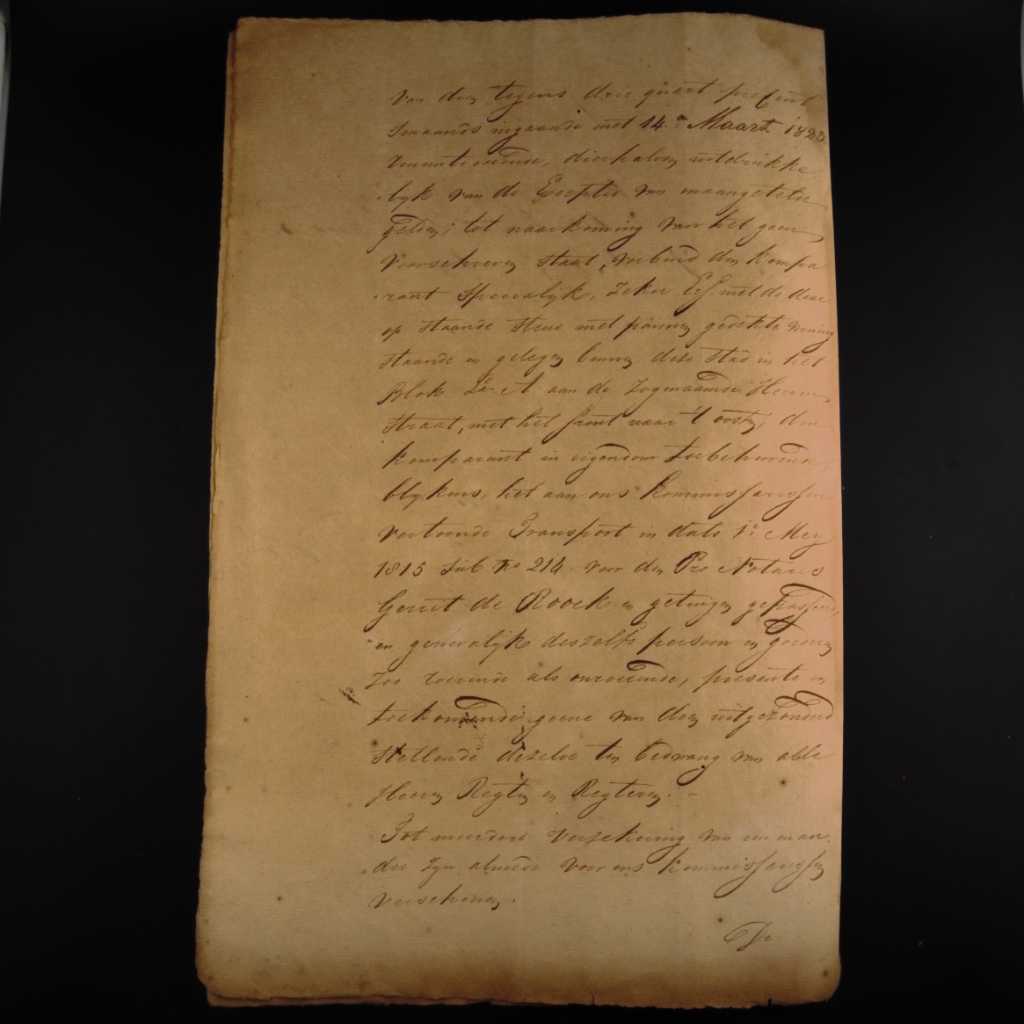 van den tegens drie quart percent
smaands ingaande met 14.e Maart 1823
renunticerende, dierhalven uitdrukke
lyk van de Exceptie van onaangetelde
gelden; tot naarkoming van het geen
voorschreven staat, verbind den kompa
rant speciaalyk, zeker Erf met de daar
op staande steene met pannen gedekte woning
staande en gelegen binnen dese stad in het
Blok L.a A aan de zogenaamde Heeren
straat, met het front naar 't oosten, den
komparant in eigendom toebehorende
blykens, het aan ons Kommissarissen
vertoonde Transport in dato 1.e Mey
1815 sub N.o 214 voor den Pro Notaris
Gerrit de Roock en getuigen gepasseerd,
en generalyk deszelfs persoon en goederen
zoo roerende als onroerende, presente en
toekomende geene van dien uitgezonderd
stellende dezelve ten bedwang van alle
Heeren Regten en Regteren. -
Tot meerdere verzekering van een en an
der zyn almede voor ons Kommissarissen
verschenen.
De